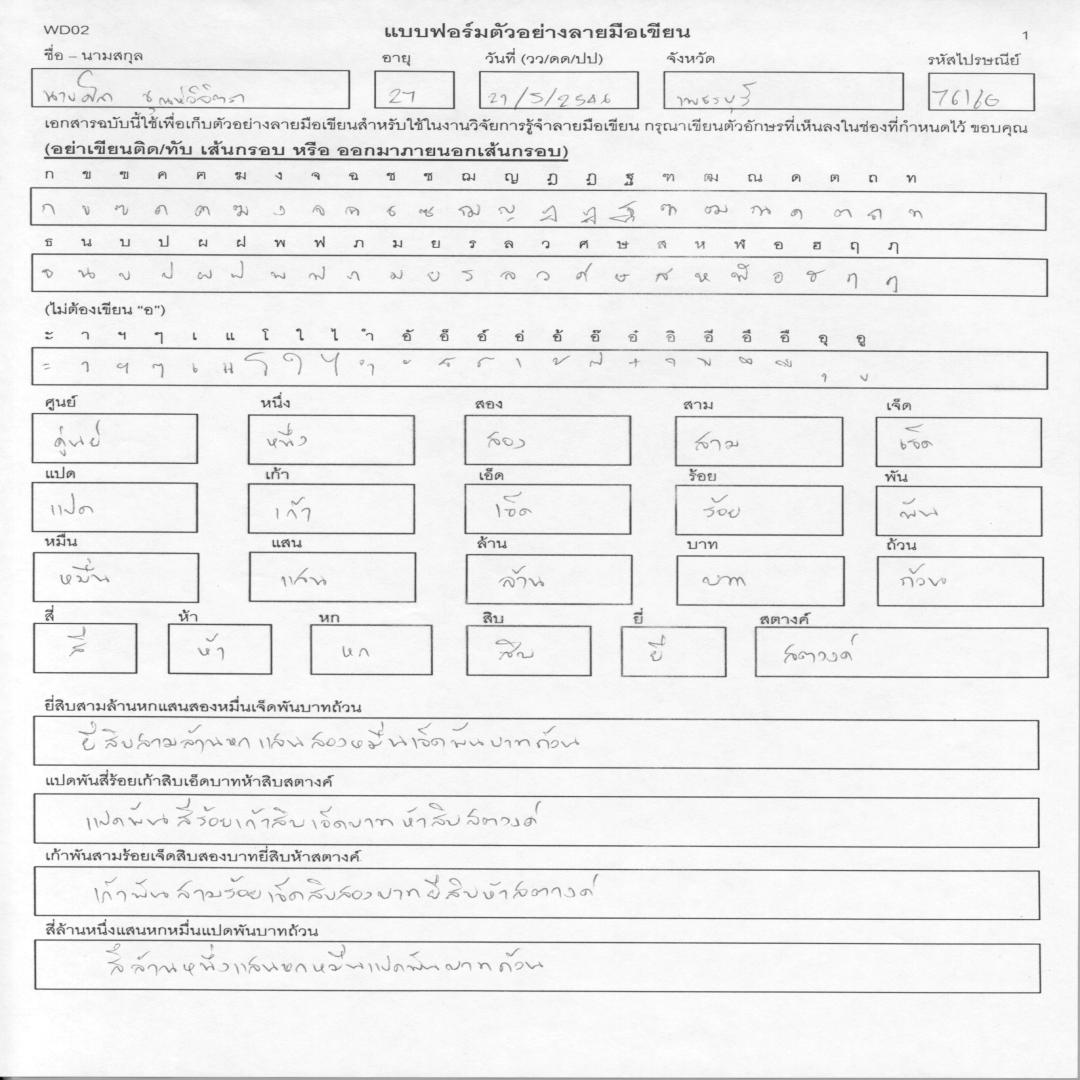 WD02 แบบฟอร์มตัวอย่างลายมือเขียน 1
ชื่อ – นามสกุล อายุ วันที่ (วว/ดด/ปป) จังหวัด รหัสไปรษณีย์
27 21/5/2546 เพชรบุรี 76160
เอกสารฉบับนี้ใช้เพื่อเก็บตัวอย่างลายมือเขียนสำหรับใช้ในงานวิจัยการรู้จำลายมือเขียน กรุณาเขียนตัวอักษรที่เห็นลงในช่องที่กำหนดไว้ ขอบคุณ
(อย่าเขียนติด/ทับ เส้นกรอบ หรือ ออกมาภายนอกเส้นกรอบ)
ก ข ฃ ค ฅ ฆ ง จ ฉ ช ซ ฌ ญ ฎ ฏ ฐ ฑ ฒ ณ ด ต ถ ท
ก ข ฃ ค ฅ ฆ ง จ ฉ ช ซ ฌ ญ ฎ ฏ ฐ ฑ ฒ ณ ด ต ถ ท
ธ น บ ป ผ ฝ พ ฟ ภ ม ย ร ล ว ศ ษ ส ห ฬ อ ฮ ฤ ฦ
ธ น บ ป ผ ฝ พ ฟ ภ ม ย ร ล ว ศ ษ ส ห ฬ อ ฮ ฤ ฦ
(ไม่ต้องเขียน “อ”)
ะ า ฯ ๆ เ แ โ ใ ไ ำ อั อ็ อ์ อ่ อ้ อ๊ อ๋ อิ อี อึ อื อุ อู
ะ า ฯ ๆ เ แ โ ใ ไ ำ ั ็ ์ ่ ้ ๊ ๋ ิ ี ึ ื ุ ู
ศูนย์ หนึ่ง สอง สาม เจ็ด
ศูนย์ หนึ่ง สอง สาม เจ็ด
แปด เก้า เอ็ด ร้อย พัน
แปด เก้า เอ็ด ร้อย พัน
หมื่น แสน ล้าน บาท ถ้วน
หมื่น แสน ล้าน บาท ถ้วน
สี่ ห้า หก สิบ ยี่ สตางค์
สี่ ห้า หก สิบ ยี่ สตางค์
ยี่สิบสามล้านหกแสนสองหมื่นเจ็ดพันบาทถ้วน
ยี่สิบสามล้านหกแสนสองหมื่นเจ็ดพันบาทถ้วน
แปดพันสี่ร้อยเก้าสิบเอ็ดบาทห้าสิบสตางค์
แปดพันสี่ร้อยเก้าสิบเอ็ดบาทห้าสิบสตางค์
เก้าพันสามร้อยเจ็ดสิบสองบาทยี่สิบห้าสตางค์
เก้าพันสามร้อยเจ็ดสิบสองบาทยี่สิบห้าสตางค์
สี่ล้านหนึ่งแสนหกหมื่นแปดพันบาทถ้วน
สี่ล้านหนึ่งแสนหกหมื่นแปดพันบาทถ้วน